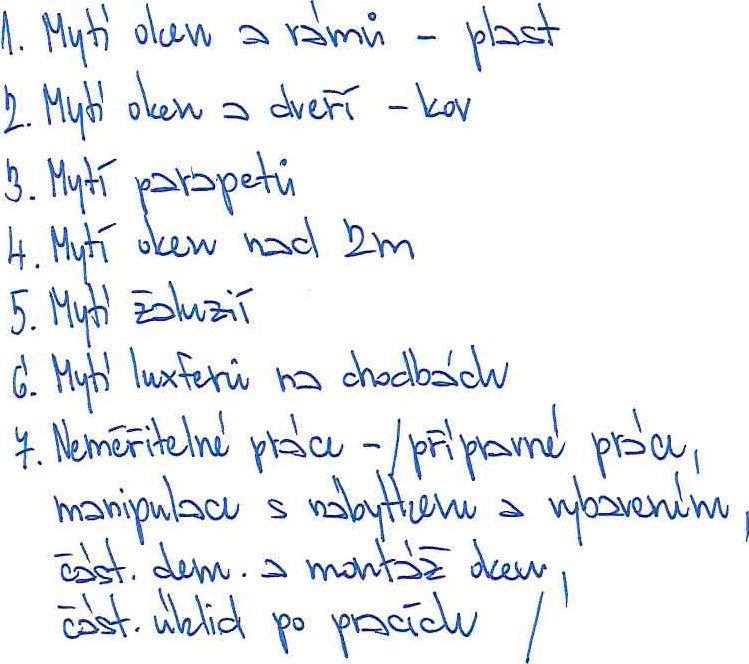 1. Mytí oken a rámů - plast
2. Mytí oken a dveří - kov
3. Mytí parapetů
4. Mytí oken nad 2m
5. Mytí žaluzií
6. Mytí luxferů na chodbách
7. Neměřitelné práce - /přípravné práce,
manipulace s nábytkem a vybavením,
část. dem. a montáž oken,
část. úklid po pracích /